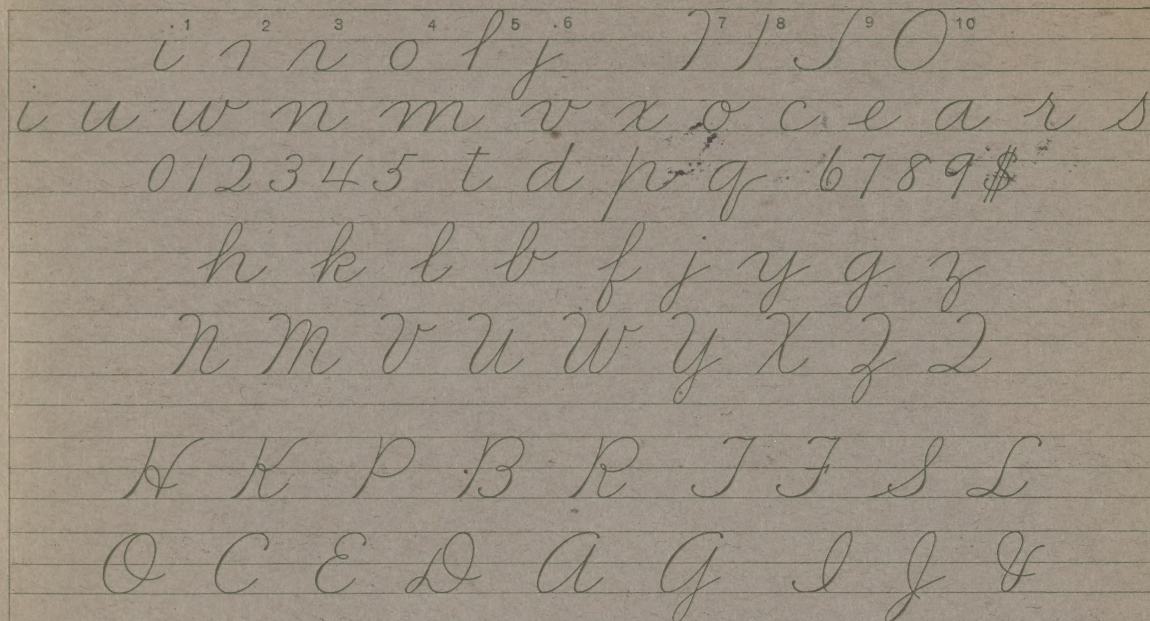 1 2 3 4 5 6 7 8 9 10
i n o l j O
i u w n m v x o c e a r s
0 1 2 3 4 5 t d p q 6 7 8 9 $
h k l b f j y g z
N M V U W Y X Z Q
H K P B R T F S L
O C E D A G I J &